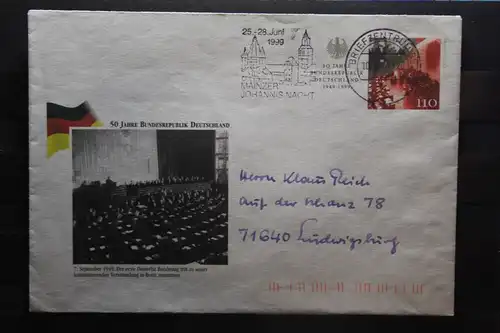 25.-28. Juni
1999
MAINZER
JOHANNISNACHT
50 JAHRE
BUNDESREPUBLIK
DEUTSCHLAND
1949-1999
BRIEFZENTRUM
110
50 JAHRE BUNDESREPUBLIK DEUTSCHLAND
Herrn Klaus Reich
Auf der Schanz 78
71640 Ludwigsburg
7. September 1949: Der erste Deutsche Bundestag tritt zu seiner
konstituierenden Versammlung in Bonn zusammen